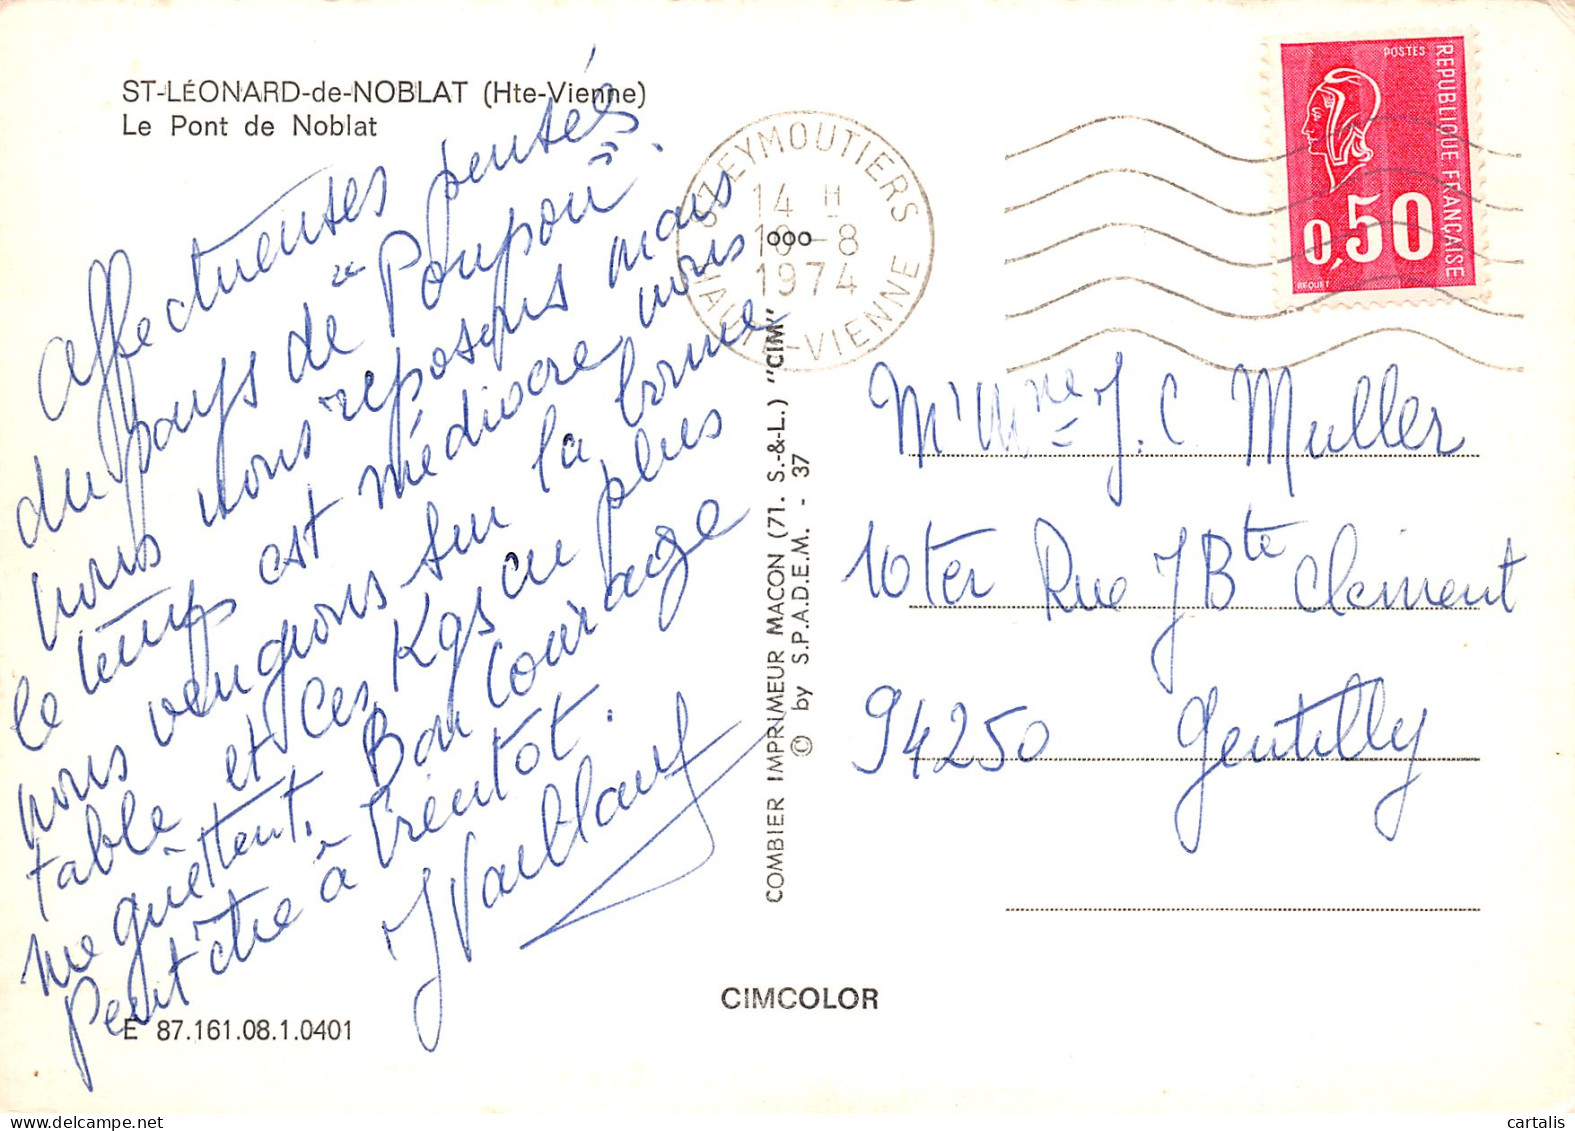 ST-LÉONARD-de-NOBLAT (Hte-Vienne)
Le Pont de Noblat
affectueuses pensées
du pays de "Poupou".
nous nous reposons mais
le temps est médiocre nous
nous vengeons sur la bonne
table et les Kgs en plus
me guettent. Bon courage
Peut être à bientot.
J Vaillant
E 87.161.08.1.0401
87 EYMOUTIERS
14 H
18-8
1974
HAUTE-VIENNE
ooo
COMBIER IMPRIMEUR MACON (71. S.-&-L.) "CIM"
© by S.P.A.D.E.M. - 37
CIMCOLOR
POSTES
REPUBLIQUE FRANÇAISE
0,50
BEQUET
M. Mme J. C. Muller
10 ter Rue J Bte Clement
94250 Gentilly
cartalis